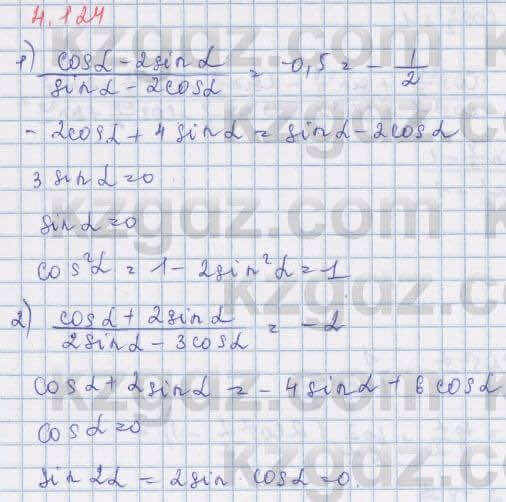 4.124
1) (cosα - 2sinα)/(sinα - 2cosα) = -0,5 = -1/2
- 2cosα + 4sinα = sinα - 2cosα
3 sinα = 0
sinα = 0
cos²α = 1 - 2sin²α = 1
2) (cosα + 2sinα)/(2sinα - 3cosα) = -2
cosα + 2sinα = -4sinα + 6cosα
cosα = 0
sin2α = 2sin · cosα = 0.
kzgdz.com